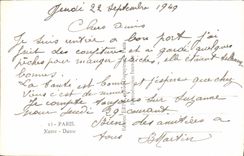 Jeudi 22 Septembre 1949
Chers amis
Je suis rentré à bon port j'ai
fait des confitures et ai gardé quelques
pêches pour manger fraîches, elle étaient
bonnes.
La Santé est bonne et j'espère que chez
vous c'est de même
Je compte toujours sur Suzanne
pour Jeudi 29 courant
Bien des amitiées à
vous
Martin
PARIS
Notre-Dame